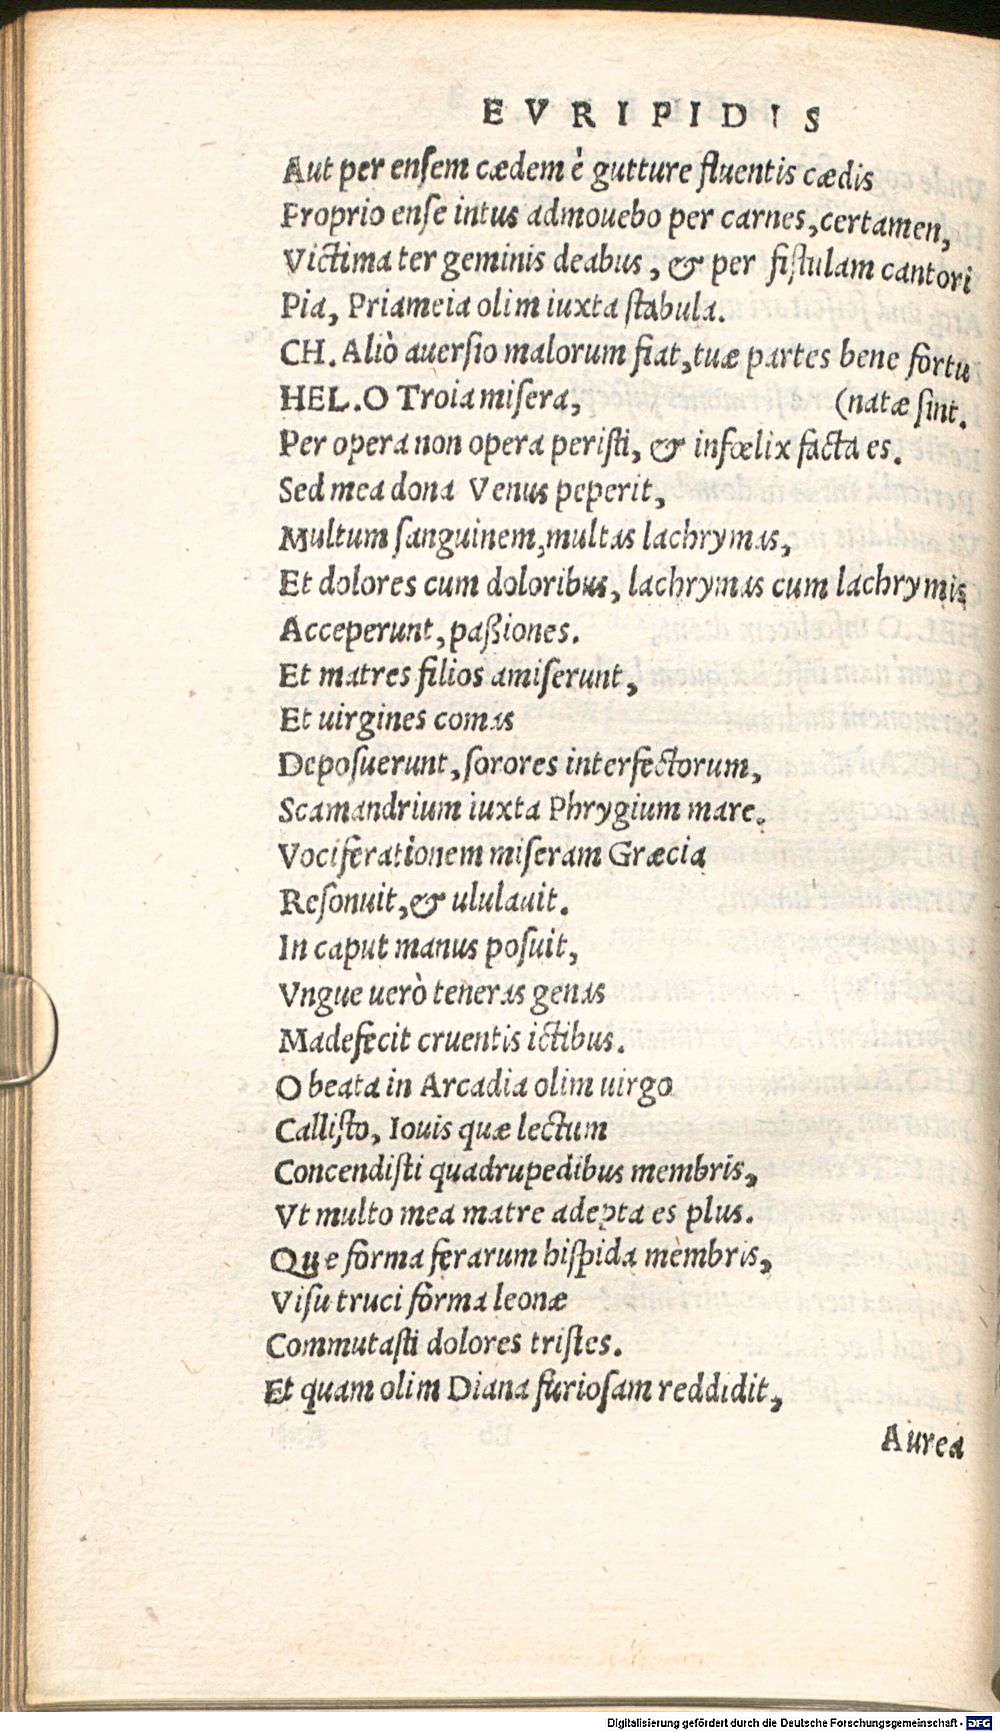 EVRIPIDIS
Aut per ensem cædem è gutture fluentis cædis
Proprio ense intus admouebo per carnes, certamen,
Victima ter geminis deabus, & per fistulam cantori
Pia, Priameia olim iuxta stabula.
CH. Aliò auersio malorum fiat, tuæ partes bene fortu
HEL. O Troia misera, (natæ sint.
Per opera non opera peristi, & infœlix facta es.
Sed mea dona Venus peperit,
Multum sanguinem, multas lachrymas,
Et dolores cum doloribus, lachrymas cum lachrymis
Acceperunt, paßiones.
Et matres filios amiserunt,
Et uirgines comas
Deposuerunt, sorores interfectorum,
Scamandrium iuxta Phrygium mare.
Vociferationem miseram Græcia
Resonuit, & ululauit.
In caput manus posuit,
Vngue uerò teneras genas
Madefecit cruentis ictibus.
O beata in Arcadia olim uirgo
Callisto, Iouis quæ lectum
Concendisti quadrupedibus membris,
Vt multo mea matre adepta es plus.
Que forma ferarum hispida membris,
Visu truci forma leonæ
Commutasti dolores tristes.
Et quam olim Diana furiosam reddidit,
Aurea
Digitalisierung gefördert durch die Deutsche Forschungsgemeinschaft - DFG